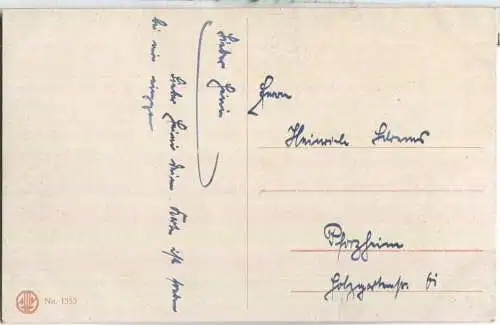 Lieber Heini
Lieber Heini deine Karte ist soeben
bei mir
Herrn
Heinrich
Pforzheim
Holzgartenstr. 61
No. 1353